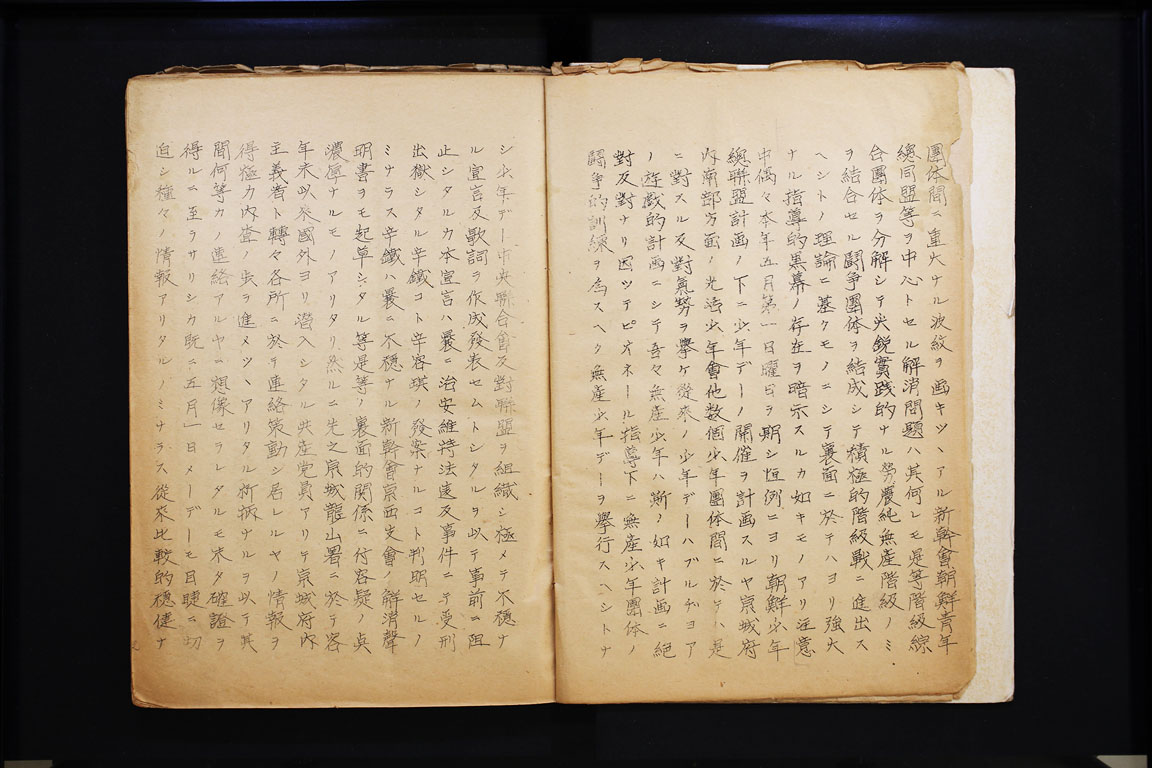 團体間ニ重大ナル波紋ヲ画キツヽアル新幹會朝鮮青年
總同盟等ヲ中心トセル解消問題ハ其何レモ是等階級綜
合團体ヲ分解シテ尖鋭實践的ナル勞農純無産階級ノミ
ヲ結合セル闘争團体ヲ結成シテ積極的階級戰ニ進出ス
ヘシトノ理論ニ基クモノニシテ裏面ニ於テハヨリ強大
ナル指導的黒幕ノ存在ヲ暗示スルカ如キモノアリ注意
中偶々本年五月第一日曜日ヲ期シ恒例ニヨリ朝鮮少年
總聯盟計画ノ下ニ少年デーノ開催ヲ計画スルヤ京城府
内南部方面ノ光活少年會他数個少年團体間ニ於テハ是
ニ對スル反對氣勢ヲ擧ケ從來ノ少年デーハブルヂヨア
ノ遊戯的計画ニシテ吾々無産少年ハ斯ノ如キ計画ニ絶
對反對ナリ因ツテピオネール指導下ニ無産少年團体ノ
闘争的訓練ヲ為スヘク無産少年デーヲ擧行スヘシトナ
シ少年デー中央聯合會反對聯盟ヲ組織シ極メテ不穏ナ
ル宣言及歌詞ヲ作成發表セムトシタルヲ以テ事前ニ阻
止シタルカ本宣言ハ曩ニ治安維持法違反事件ニテ受刑
出獄シタル辛鐵コト辛容琪ノ發案ナルコト判明セルノ
ミナラス辛鐵ハ曩ニ不穏ナル新幹會京西支會ノ解消聲
明書ヲモ起草シタル等是等ノ裏面的関係ニ付容疑ノ点
濃厚ナルモノアリタリ然ルニ先之京城龍山署ニ於テ客
年末以來國外ヨリ潜入シタル共産党員アリテ京城府内
主義者ト轉々各所ニ於テ連絡策動シ居レルヤノ情報ヲ
得極力内査ノ歩ヲ進メツヽアリタル折柄ナルヲ以テ其
間何等カノ連絡アルヤニ想像セラレタルモ未タ確證ヲ
得ルニ至ラサリシカ既ニ五月一日メーデーモ目睫ニ切
迫シ種々ノ情報アリタルノミナラス從來比較的穏健ナ